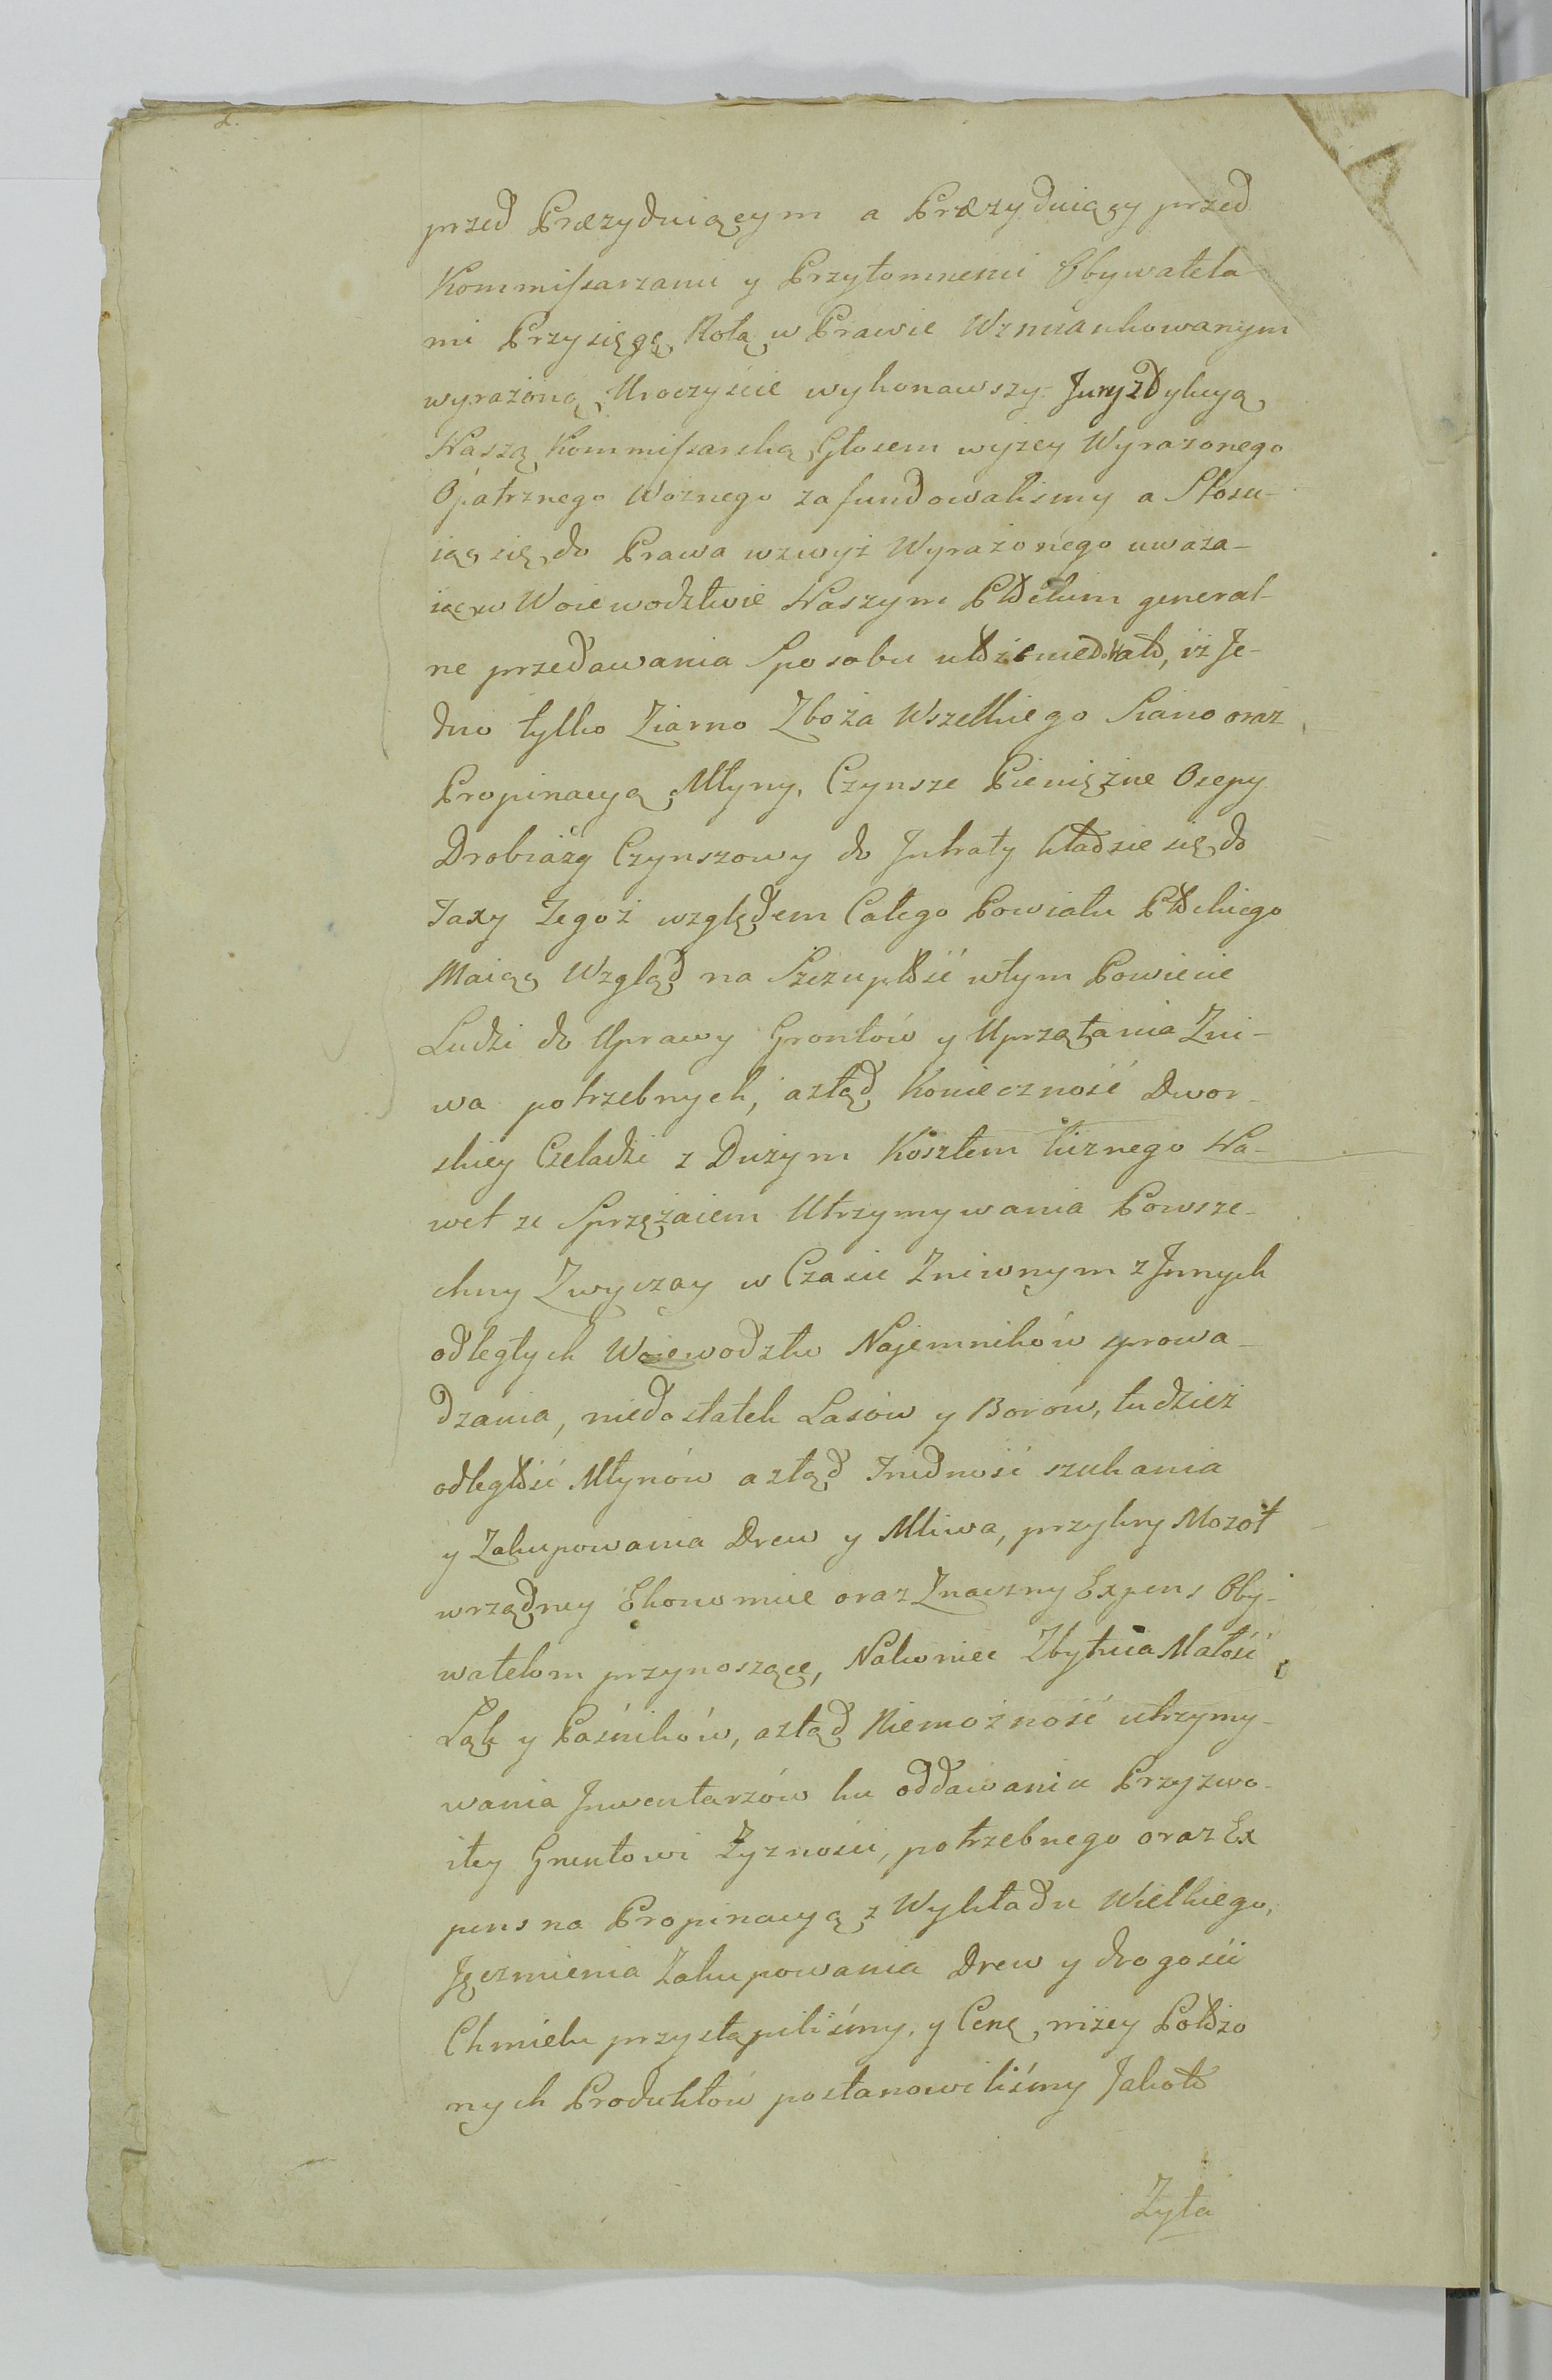 2.
przed Prezyduiącym a Prezyduiący przed
Kommissarzami y Przytomnemi Obywatela
mi Przysięgę Rotą w Prawie Wzmiankowanym
wyrażoną Uroczyście wykonawszy Juryzdykcyą
Naszą Kommissarską Głosem wyżey Wyrażonego
Opatrznego Woznego zafundowaliśmy a Stosu-
iąc się do Prawa wzwyż Wyrażonego uważa-
iąc w Woiewodztwie Naszym general-
ne przedawania Sposobu iż Je-
dno tylko Ziarno Zboża Wszelkiego Siano oraz
Propinacyą Młyny, Czynsze Pieniężne Osepy
Drobiazg Czynszowy do Jntraty kładzie się do
Taxy Tegoż względem Całego Powiatu
Maiąc Wzgląd na Szczupłość w tym Powiecie
Ludzi do Uprawy Grontów y Uprzątania Zni-
wa potrzebnych, a ztąd Konieczność Dwor-
skiey Czeladzi z Dużym Kosztem licznego Na-
wet ze Sprzężaiem Utrzymywania Powsze-
chny Zwyczay w Czasie Zniwnym z Jnnych
odległych Woiewodztw Najemników sprowa-
dzania, niedostatek Lasów y Borów, tudzież
odległość Młynów a ztąd Trudność szukania
y Zakupowania Drew y Mliwa, przykry Mozoł
w rządney Ekonomice oraz Znaczny Expens Oby-
watelom przynoszące, Nakoniec Zbytnia Małość
Łąk y Paśników, a ztąd Niemożność utrzymy-
wania Jnwentarzów ku oddawaniu Przyzwo-
itey Gruntowi Żyzności, potrzebnego oraz Ex
pens na Propinacyą z Wykładu Wielkiego,
Jęczmienia Zakupowania Drew y drogości
Chmielu przystąpiliśmy, y Cenę niżey Położo
nych Produktów postanowiliśmy Jakoto
Żyta